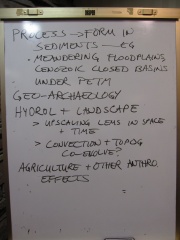 PROCESS → FORM IN
SEDIMENTS — EG
• MEANDERING FLOODPLAINS,
CENOZOIC CLOSED BASINS
UNDER PETM
GEO-ARCHAEOLOGY
HYDROL + LANDSCAPE
> UPSCALING LEMS IN SPACE
+ TIME
> CONVECTION + TOPOG
CO-EVOLVE?
AGRICULTURE + OTHER ANTHRO.
EFFECTS